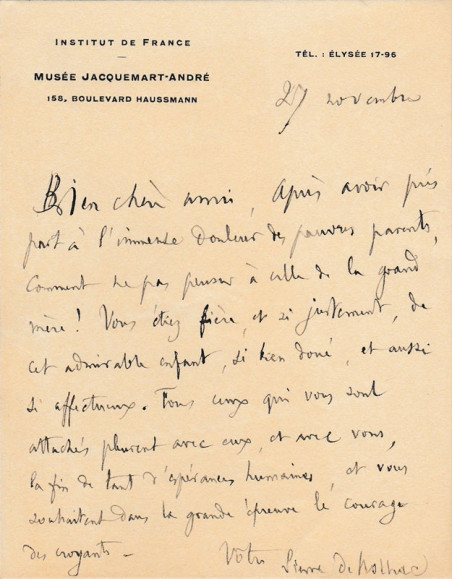 INSTITUT DE FRANCE
MUSÉE JACQUEMART-ANDRÉ
158, BOULEVARD HAUSSMANN
TÉL. : ÉLYSÉE 17-96
27 novembre
Bien chère amie, Après avoir pris
part à l'immense douleur des pauvres parents,
comment ne pas penser à celle de la grand
mère ! Vous étiez fière, et si justement, de
cet admirable enfant, si bien doué, et aussi
si affectueux. Tous ceux qui vous sont
attachés pleurent avec eux, et avec vous,
la fin de tant d'espérances humaines, et vous
souhaitent dans la grande épreuve le courage
des croyants —
Votre Pierre de Nolhac